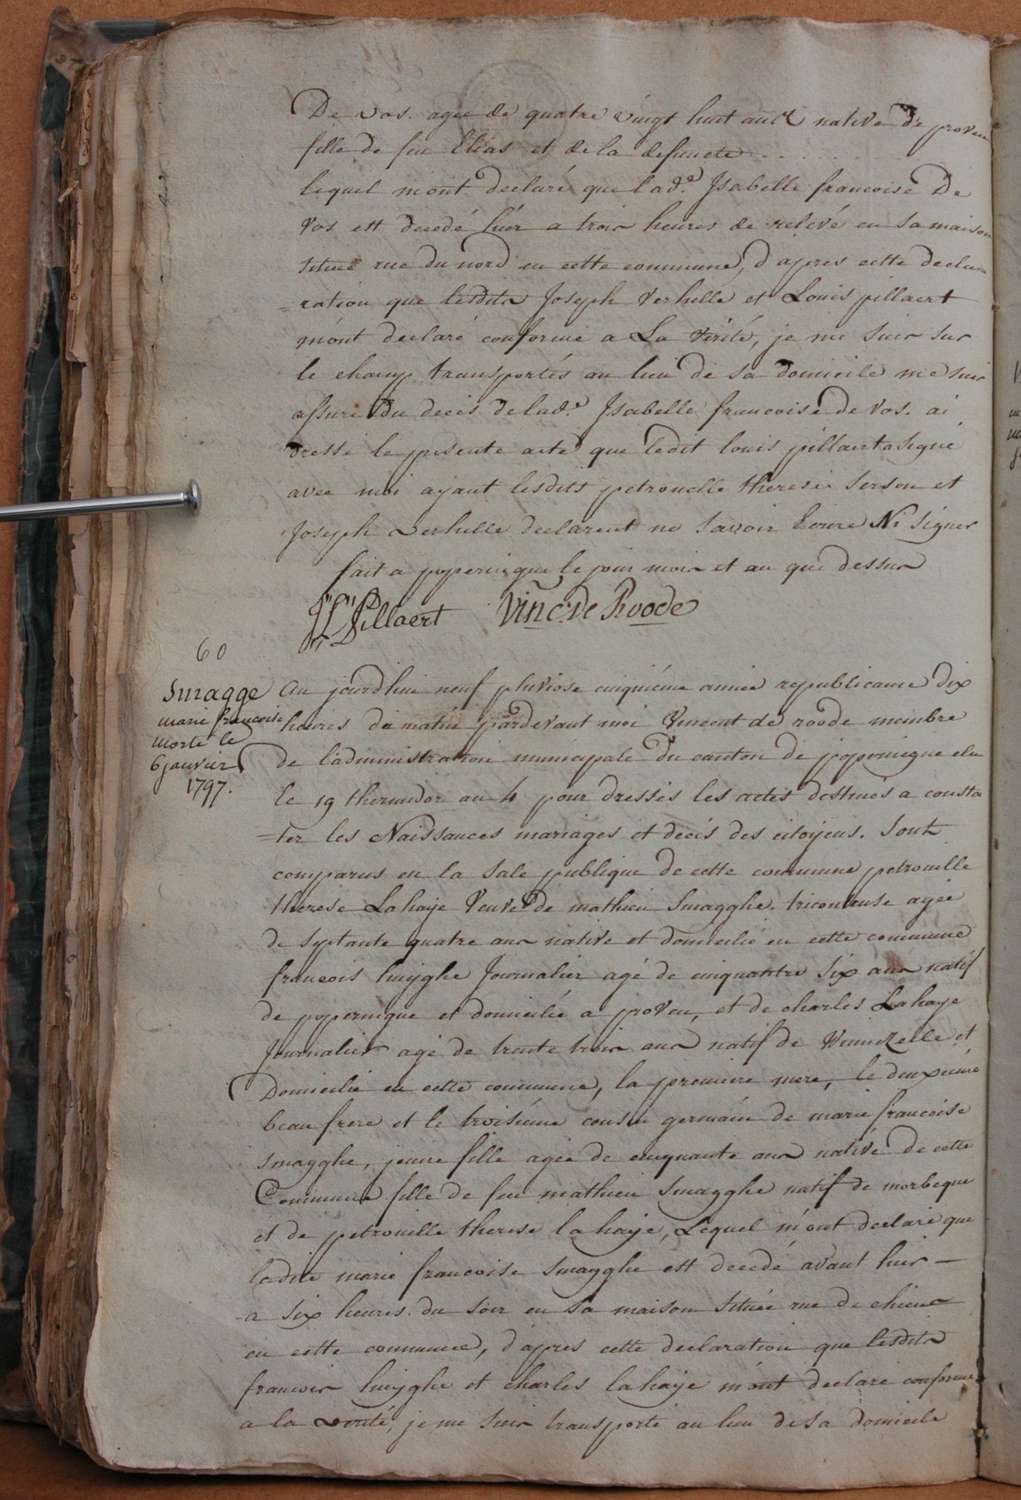 De vos. agee de quatre vingt huit ans native de proven
fille de feu Elias et de la defuncte
lequel m'ont declaré que lad.e Isabelle francoise De
Vos est decedé hier a trois heures de relevé en sa maison
située rue du nord en cette commune, d'apres cette decla
=ration que lesdits Joseph Verhille et Louis pillaert
m'ont declaré conforme a La Verité, je me suis sur
le champ transportés au lieu de sa domicile me suis
assuré du decés de lad.e Isabelle francoise de vos. ai
dressé le présente acte que ledit louis pillaert a signé
avec moi ayant lesdits petronelle therese Serson et
Joseph verhille declarent ne savoir Ecrire Ni signer
fait a poperingue le jour mois et an que dessus
J L Pillaert Vinc: De Roode
60
Smagge
marie francoise
morte le
6 janvier
1797.
Au jourdhui neuf pluviose cinquième année republicaine dix
heures du matin pardevant moi Vincent de roode membre
de l'administration municipale du canton de poperingue elu
le 19 thermidor an 4 pour dressés les actes destinés a consta
=ter les Naissances mariages et decés des citoyens. Sont
comparus en la sale publique de cette commune petronelle
therese Lahaje Veuve de mathieu Smagghe. tricoteuse agée
de septante quatre ans native et domicilié en cette commune
francois huyghe Journalier agé de cinquante six ans natif
de poperingue et domicilié a proven, et de charles Lahaye
Journalier agé de trente trois ans natif de Winnizelle et
Domicilié en cette commune, la premiere mere, le deuxieme
beau frere et le troisiéme cousin germain de marie francoise
smagghe, jeune fille agée de cinquante ans native de cette
Commune fille de feu mathieu Smagghe natif de morbeque
et de petronille therese la haje, Lequel m'ont declaré que
ladite marie francoise smagghe est decedé avant hier —
a six heures du soir en sa maison située rue de chiens
en cette commune, d'apres cette declaration que lesdits
francois huyghe et charles la haje m'ont declaré conforme
a la verité, je me suis transporté au lieu de sa domicile